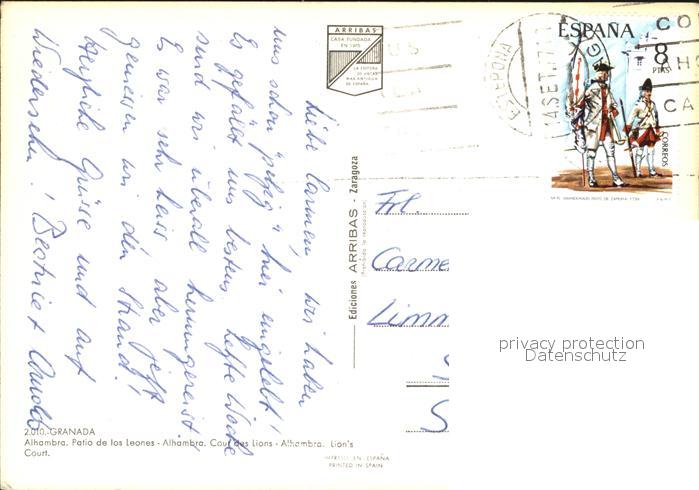 Liebe Carmen, wir haben
uns schon " " hier eingelebt!
Es gefällt uns bestens, letzte Woche
sind wir überall herumgereist!
Es war sehr heiss aber jetzt
geniessen wir den Strand!
Herzliche Grüsse und auf
Wiedersehn! Beatrice + Arnold
ARRIBAS
CASA FUNDADA
EN 1915
LA EDITORA
DE POSTALES
MAS ANTIGUA
DE ESPAÑA
Ediciones ARRIBAS - Zaragoza
(Prohibida la reproducción)
ESTEPONA
SET. 7
CO
HO
CA
ESPAÑA
8
PTAS
CORREOS
Frl.
Carme
Limm
S
privacy protection
Datenschutz
2.010.-GRANADA
Alhambra. Patio de los Leones - Alhambra. Cour des Lions - Alhambra. Lion's
Court.
IMPRESO EN ESPAÑA
PRINTED IN SPAIN